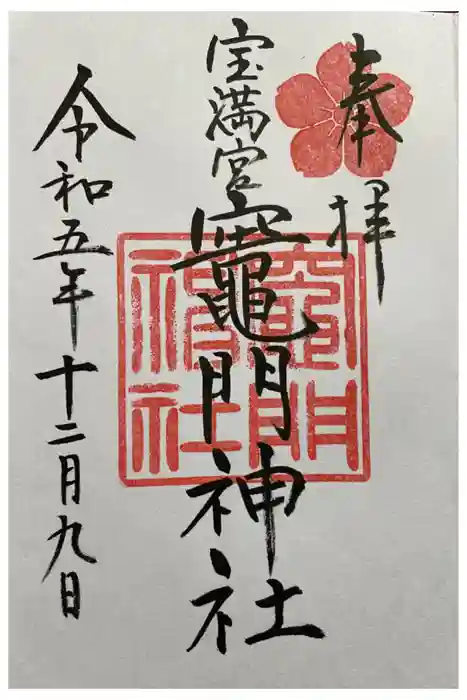 奉拝
宝満宮
竈門神社
竈門
神社
令和五年十二月九日